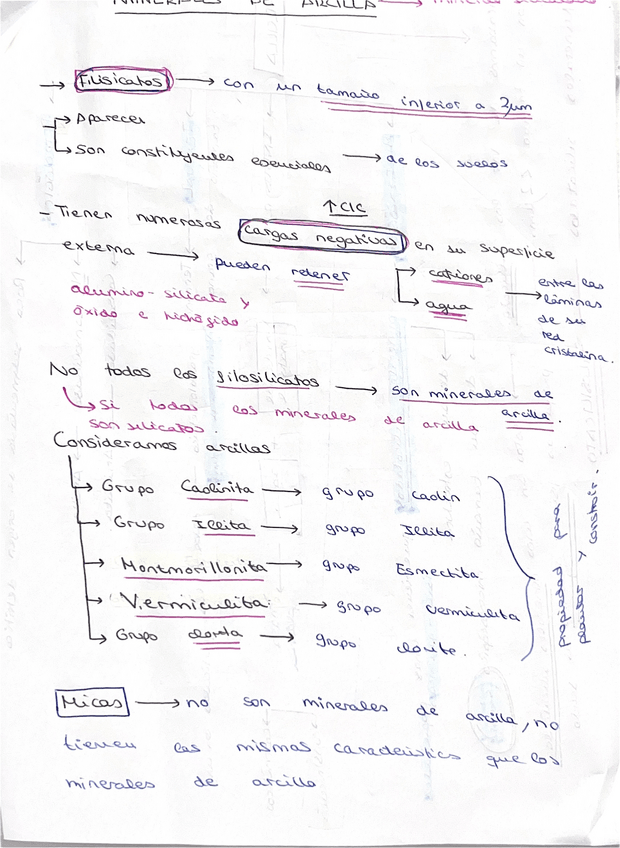 MINERALES DE ARCILLA →
→ Filisicatos → con un tamaño inferior a 2μm
→ Aparecer
→ Son constituyentes esenciales → de los suelos
↑CIC
- Tienen numerosas cargas negativas en su superficie
externa → pueden retener → cationes
→ agua → entre las
láminas
de su
red
cristalina.
alumino-silicato y
óxido e hidróxido
No todos los filosilicatos → son minerales de
arcilla.
↳ Si todos los minerales de arcilla
son silicatos.
Consideramos arcillas
→ Grupo Caolinita → grupo caolin
→ Grupo Illita → grupo Illita
→ Montmorillonita → grupo Esmectita
→ Vermiculita → grupo vermiculita
→ Grupo clorita → grupo clorite.
propiedad para
plantar y construir.
Micas → no son minerales de arcilla, no
tienen las mismas caracteristics que los
minerales de arcilla